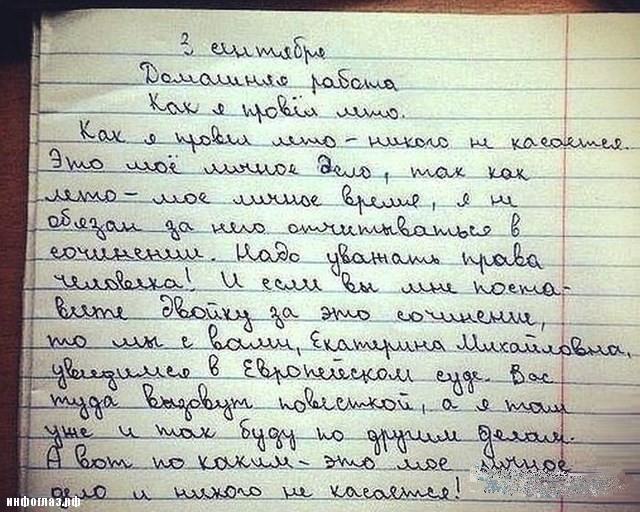 3 сентября
Домашняя работа
Как я провёл лето.
Как я провел лето – никого не касается.
Это моё личное дело, так как
лето – мое личное время, я не
обязан за него отчитываться в
сочинении. Надо уважать права
человека! И если вы мне поста-
вите двойку за это сочинение,
то мы с вами, Екатерина Михайловна,
увидимся в Европейском суде. Вас
туда вызовут повесткой, а я там
уже и так буду по другим делам.
А вот по каким – это мое личное
дело и никого не касается!
инфоглаз.рф